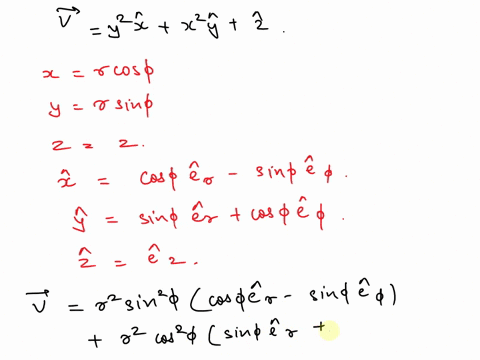 V⃗ = y²x̂ + x²ŷ + ẑ .
x = r cosϕ
y = r sinϕ
z = z.
x̂ = cosϕ ê_r - sinϕ ê_ϕ.
ŷ = sinϕ ê_r + cosϕ ê_ϕ.
ẑ = ê_z.
V⃗ = r² sin²ϕ (cosϕ ê_r - sinϕ ê_ϕ)
+ r² cos²ϕ (sinϕ ê_r +